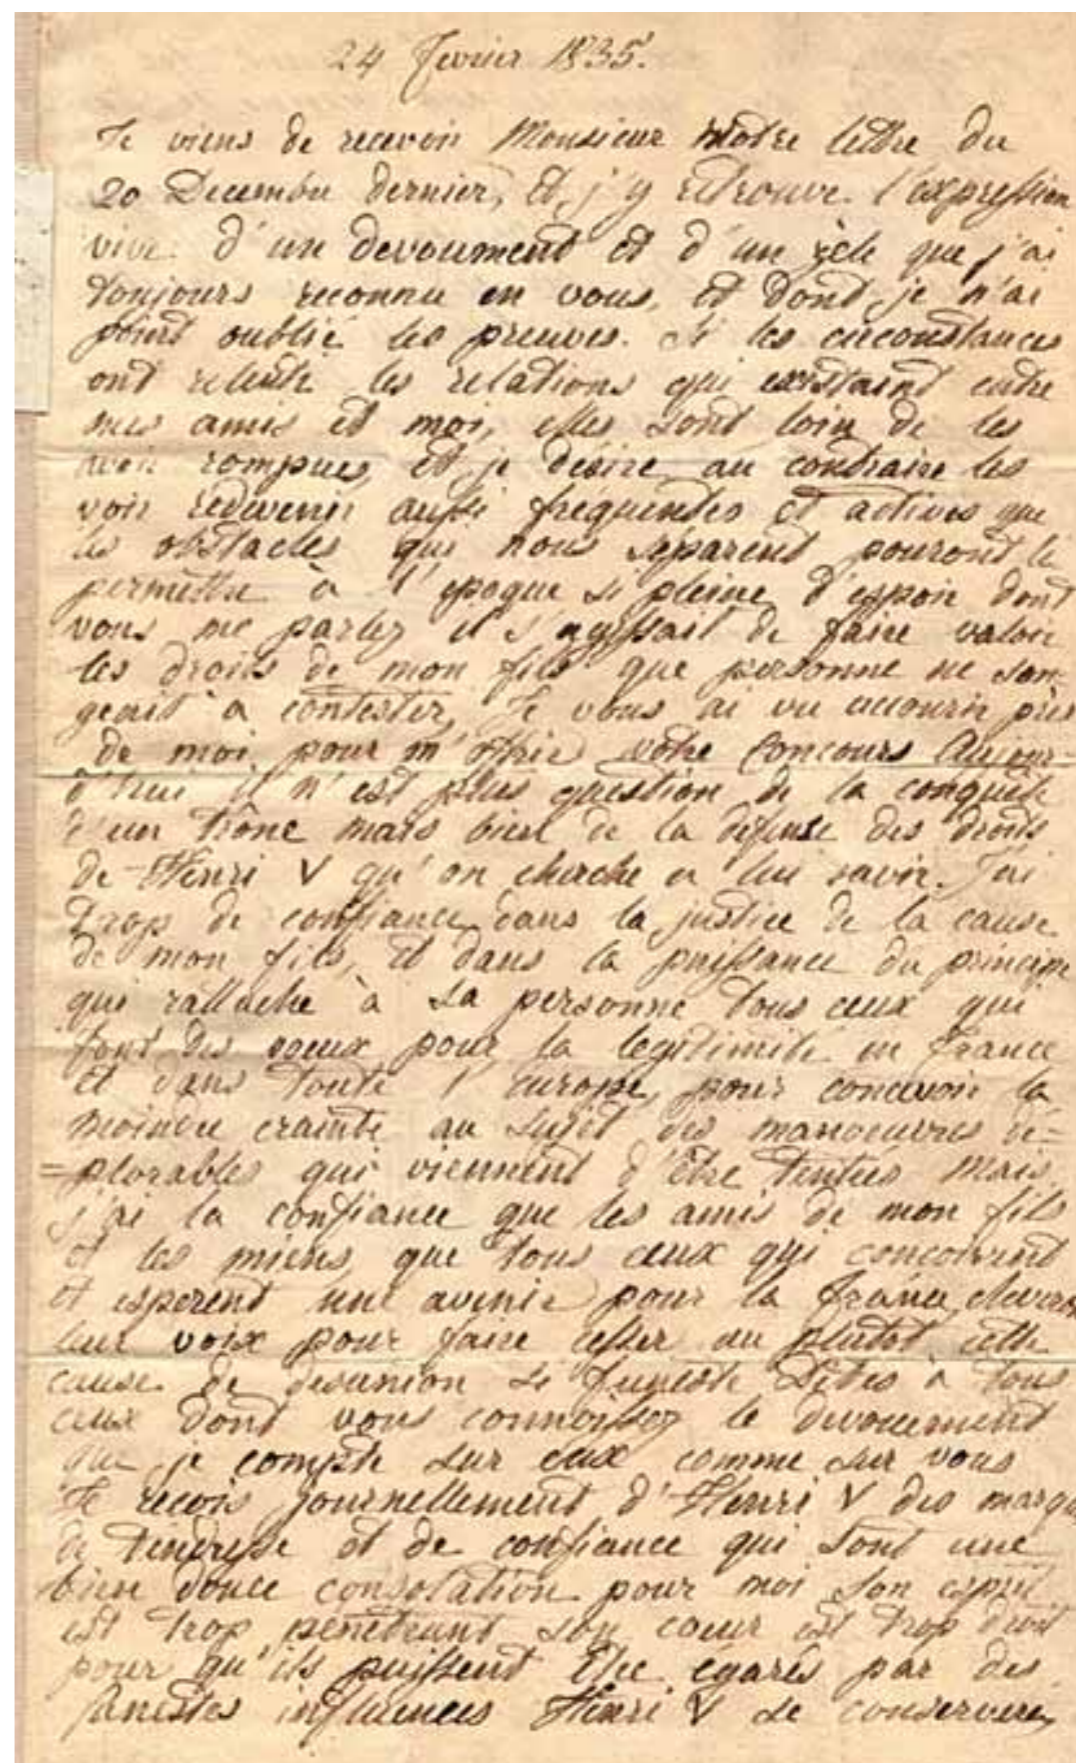 24 Fevrier 1835.
Je viens de recevoir Monsieur votre lettre du
20 Decembre dernier, et j'y retrouve l'expression
vive d'un devoument et d'un zele que j'ai
toujours reconnu en vous, et dont je n'ai
point oublié les preuves. Si les circonstances
ont relaché les relations qui existaient entre
mes amis et moi, elles sont loin de les
avoir rompues, et je desire au contraire les
voir redevenir aussi frequentes et actives que
les obstacles qui nous séparent pouront le
permettre à l'epoque si pleine d'espoir dont
vous me parlez il s'agissait de faire valoir
les droits de mon fils que personne ne son-
geait à contester, Je vous ai vu accourir près
de moi pour m'offrir votre concours Aujour-
d'hui il n'est plus question de la conquête
d'un trône mais bien de la défense des droits
de Henri V qu'on cherche a lui ravir. J'ai
trop de confiance dans la justice de la cause
de mon fils, et dans la puissance du principe
qui rattache à sa personne tous ceux qui
font des voeux pour la legitimité en france
et dans toute l'europe, pour concevoir la
moindre crainte au sujet des manoeuvres dé=
=plorables qui viennent d'être tentées mais
j'ai la confiance que les amis de mon fils
et les miens, que tous ceux qui concoivent
et esperent une avenir pour la france, eleveront
leur voix pour faire cesser au plutot cette
cause de desunion si funeste Dites à tous
ceux dont vous connoissez le devouement
que je compte sur eux comme sur vous
Je recois journellement d'Henri V des marques
de tendresse et de confiance qui sont une
bien douce consolation pour moi son esprit
est trop penetrant son coeur est trop droit
pour qu'ils puissent être egarés par des
funestes influences Henri V se conservera